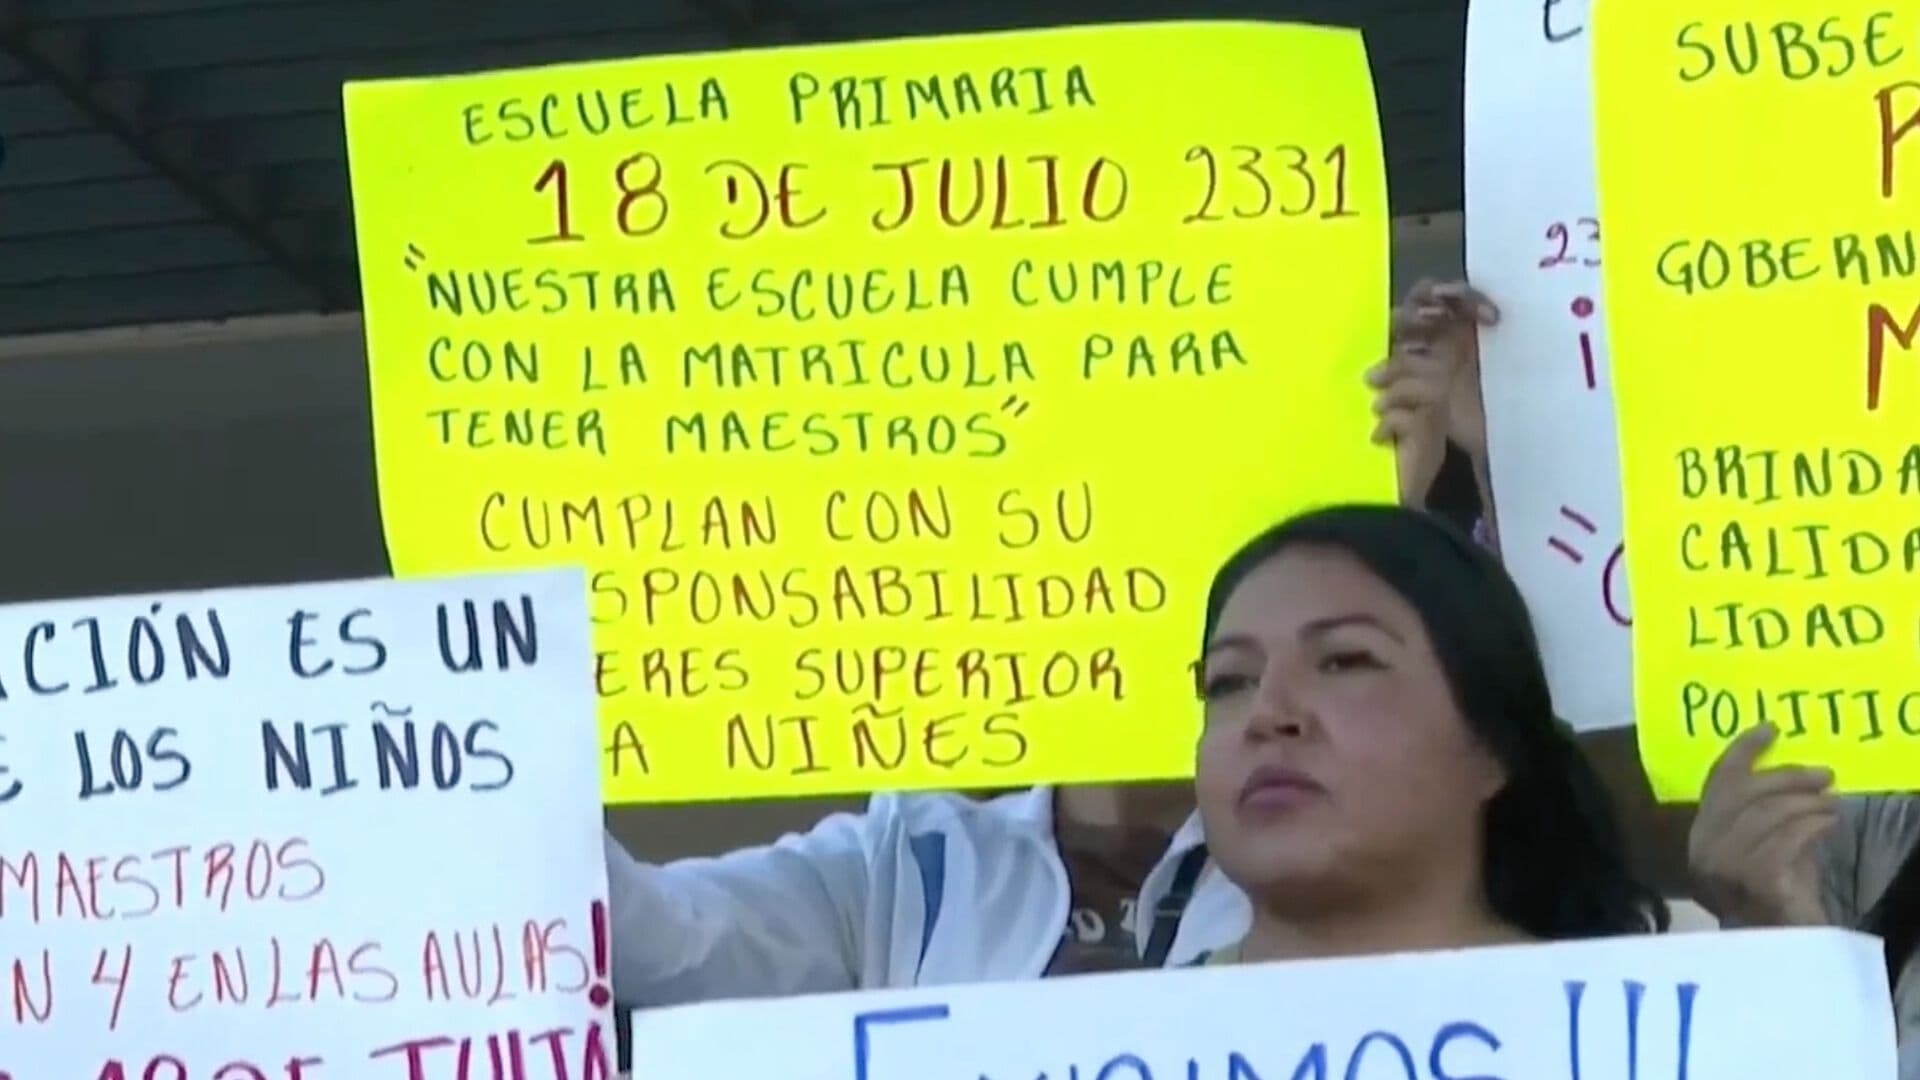 ESCUELA PRIMARIA
18 DE JULIO 2331
"NUESTRA ESCUELA CUMPLE
CON LA MATRICULA PARA
TENER MAESTROS"
CUMPLAN CON SU
SPONSABILIDAD
ERES SUPERIOR
A NIÑES
CIÓN ES UN
LOS NIÑOS
MAESTROS
N 4 EN LAS AULAS!
DE JULIO
EXIGIMOS!!!
23
¡
SUBSE
P
GOBERN
M
BRINDA
CALIDA
LIDAD
POLITIC